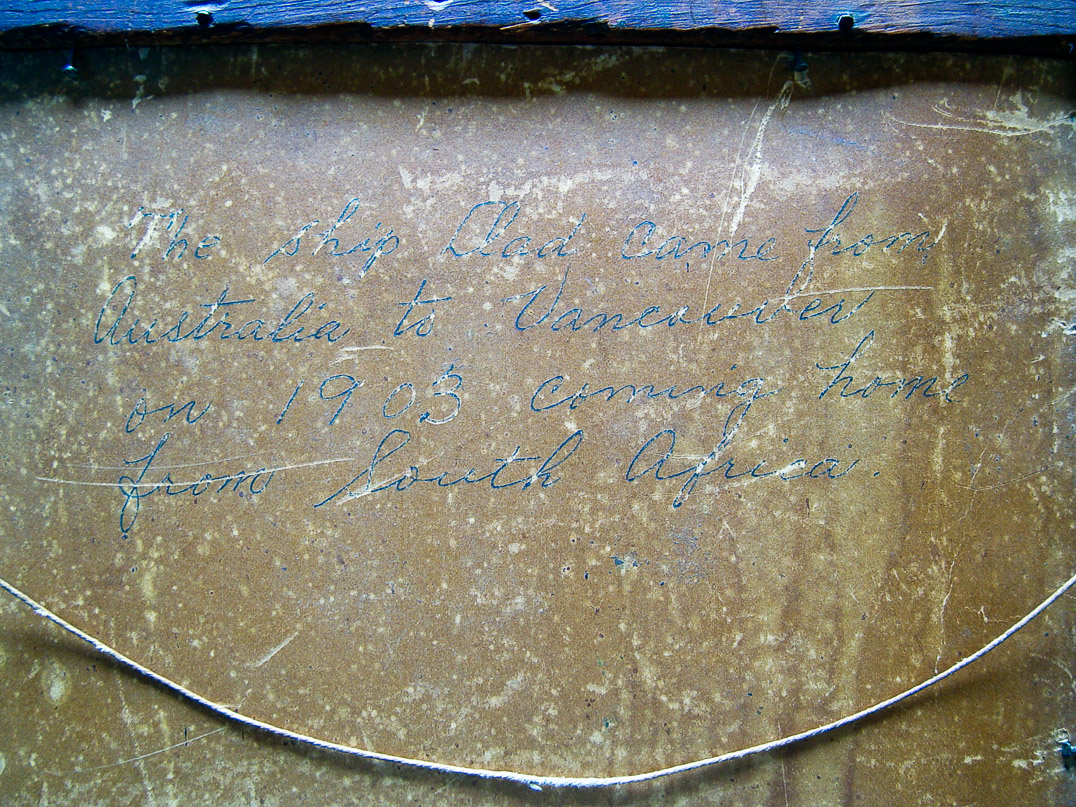 The ship Dad came from
Australia to Vancouver
on 1903 coming home
from South Africa.